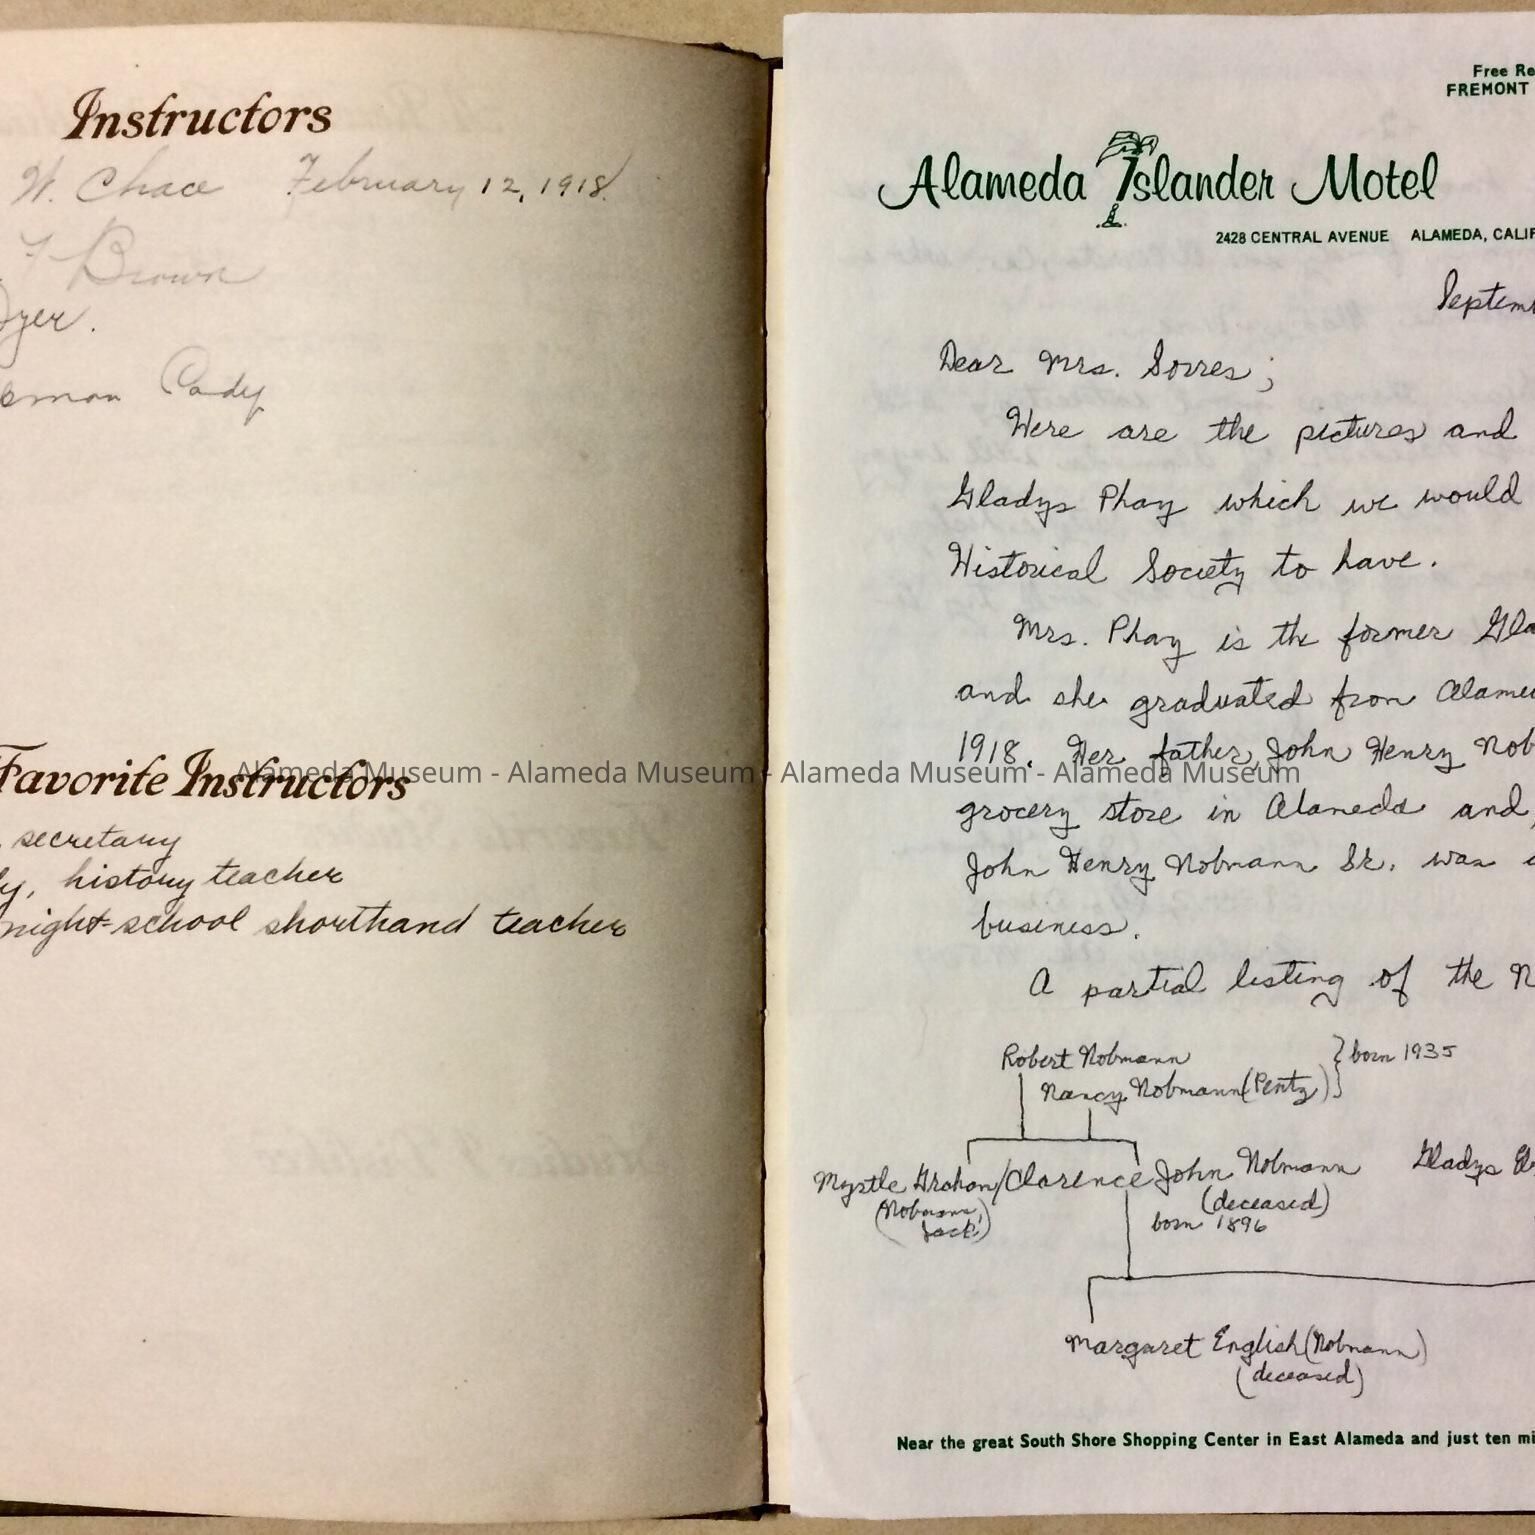 Instructors
W. Chace February 12, 1918.
F Brown
Dyer.
Cady
Favorite Instructors
secretary
history teacher
night-school shorthand teacher
Free Re
FREMONT
Alameda Islander Motel
2428 CENTRAL AVENUE ALAMEDA, CALIF
Septem
Dear Mrs. Sorres;
Here are the pictures and
Gladys Phay which we would
Historical Society to have.
Mrs. Phay is the former Gla
and she graduated from Alame
1918. Her father, John Henry Nob
grocery store in Alameda and,
John Henry Nobmann Sr. was
business.
A partial listing of the N
Robert Nobmann
Nancy Nobmann (Pentz) } born 1935
Myrtle Graham/Clarence John Nobmann Gladys El
(Nobmann, Jack) (deceased)
born 1896
Margaret English (Nobmann)
(deceased)
Near the great South Shore Shopping Center in East Alameda and just ten mi
Alameda Museum - Alameda Museum - Alameda Museum - Alameda Museum